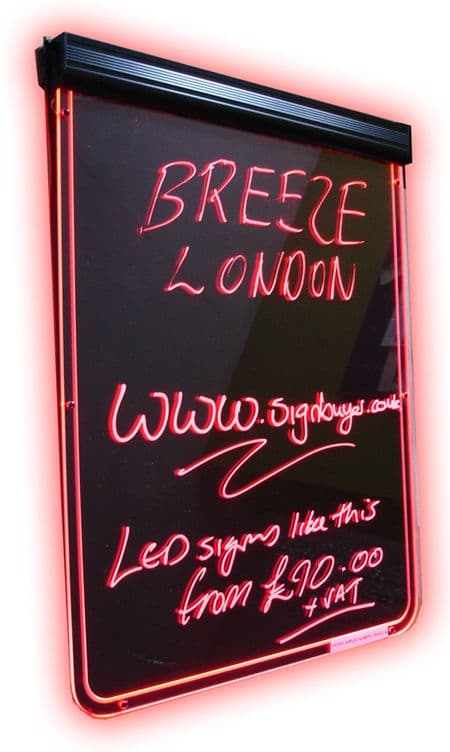 BREEZE
LONDON
www.signbuyer.co.uk
LED signs like this
from £90.00
+ VAT